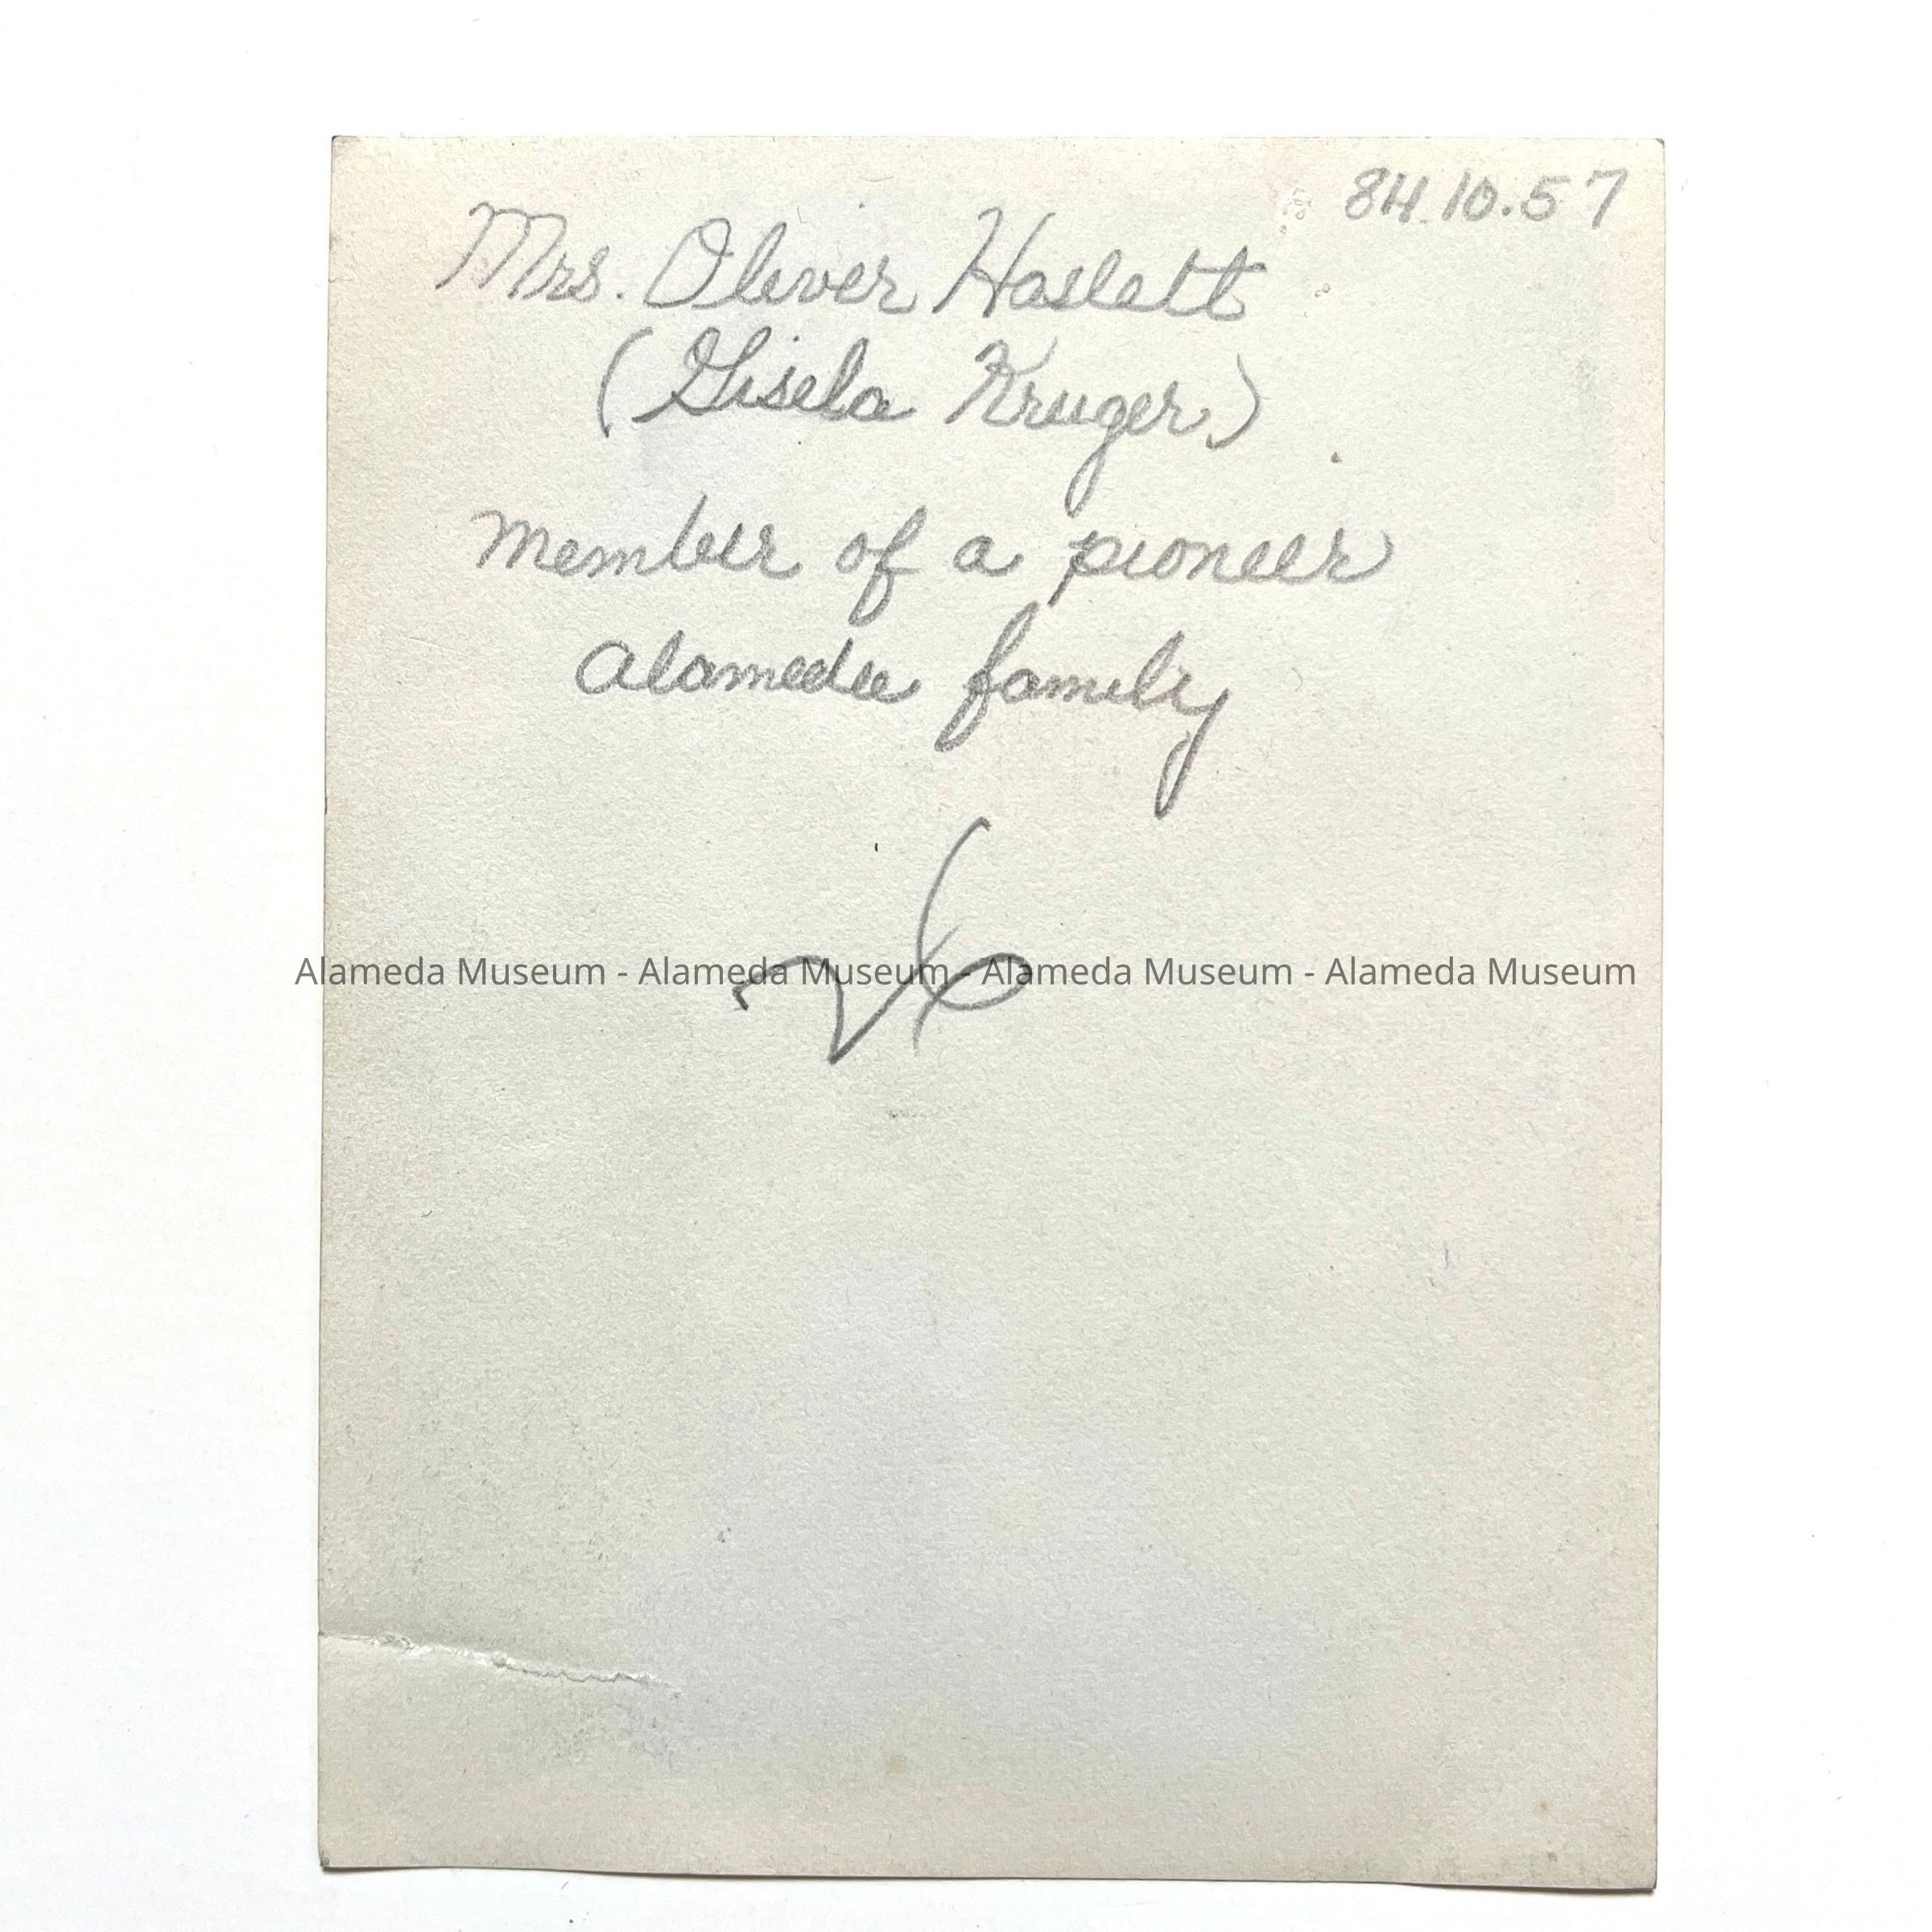 84.10.57
Mrs. Oliver Haslett
(Gisela Kruger)
member of a pioneer
Alameda family
Alameda Museum - Alameda Museum - Alameda Museum - Alameda Museum